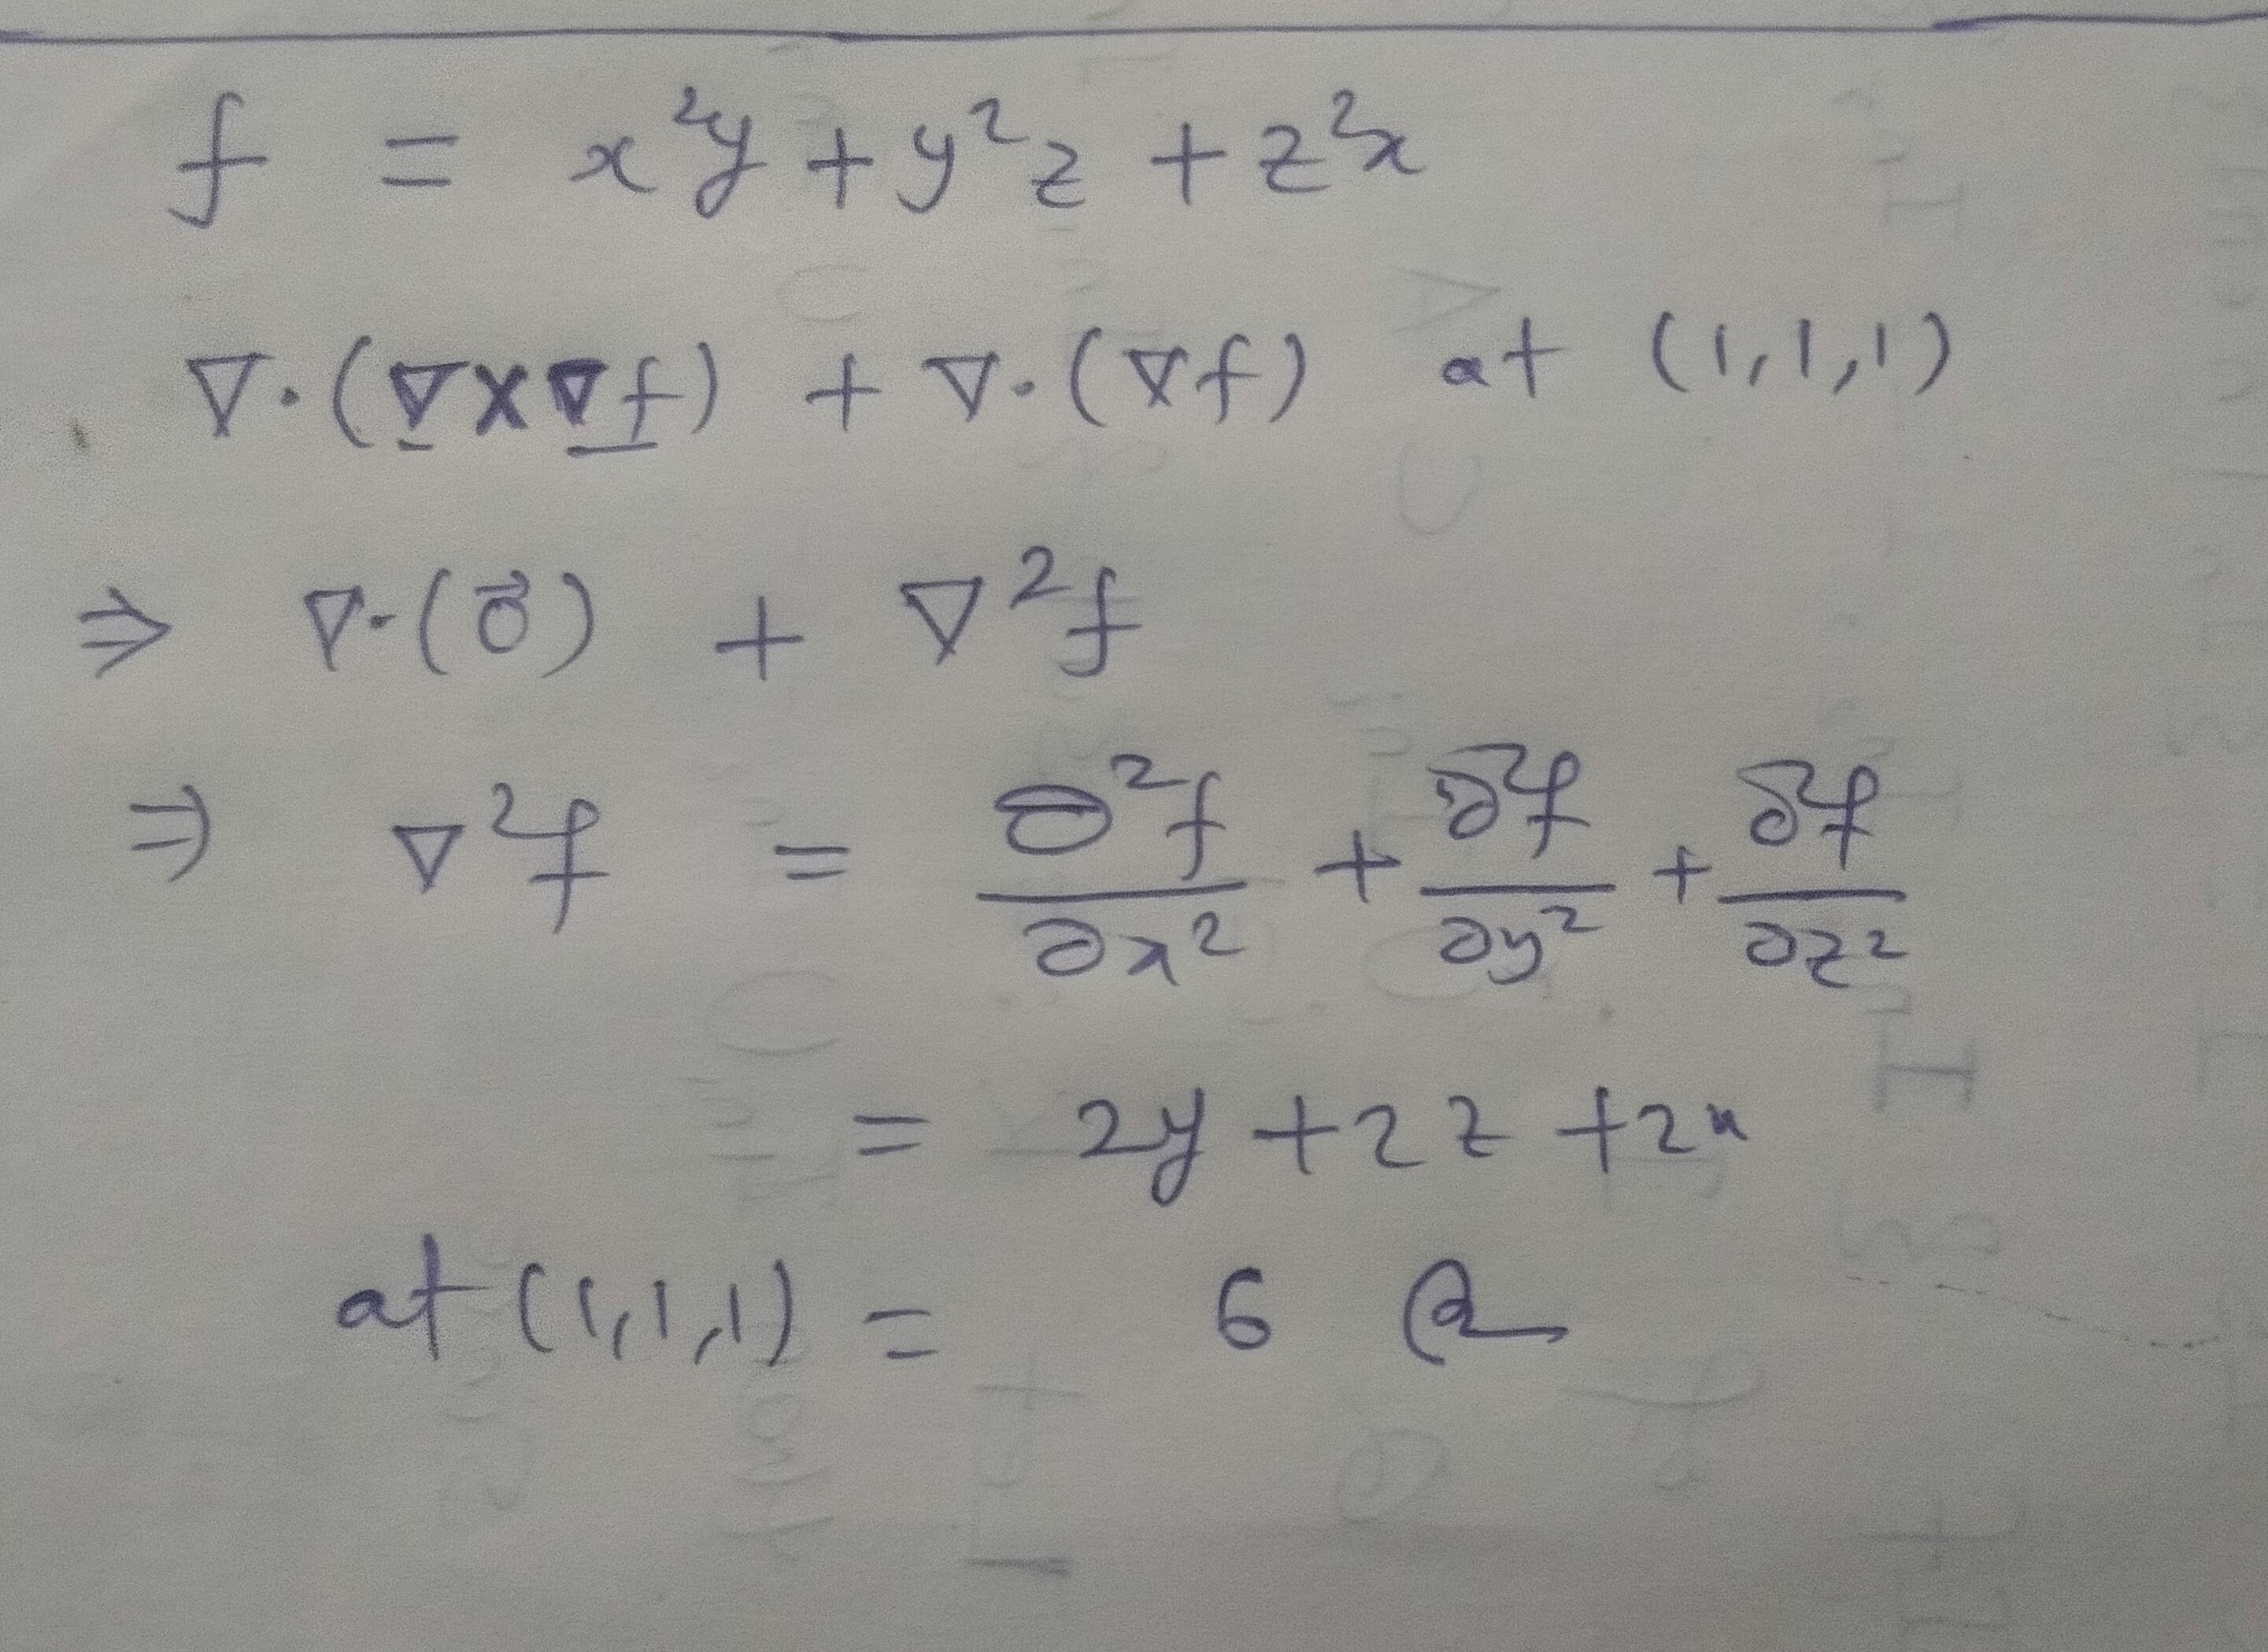 f = x²y + y²z + z²x
∇·(∇×∇f) + ∇·(∇f) at (1,1,1)
⇒ ∇·(0⃗) + ∇²f
⇒ ∇²f = ∂²f/∂x² + ∂²f/∂y² + ∂²f/∂z²
= 2y + 2z + 2x
at (1,1,1) = 6